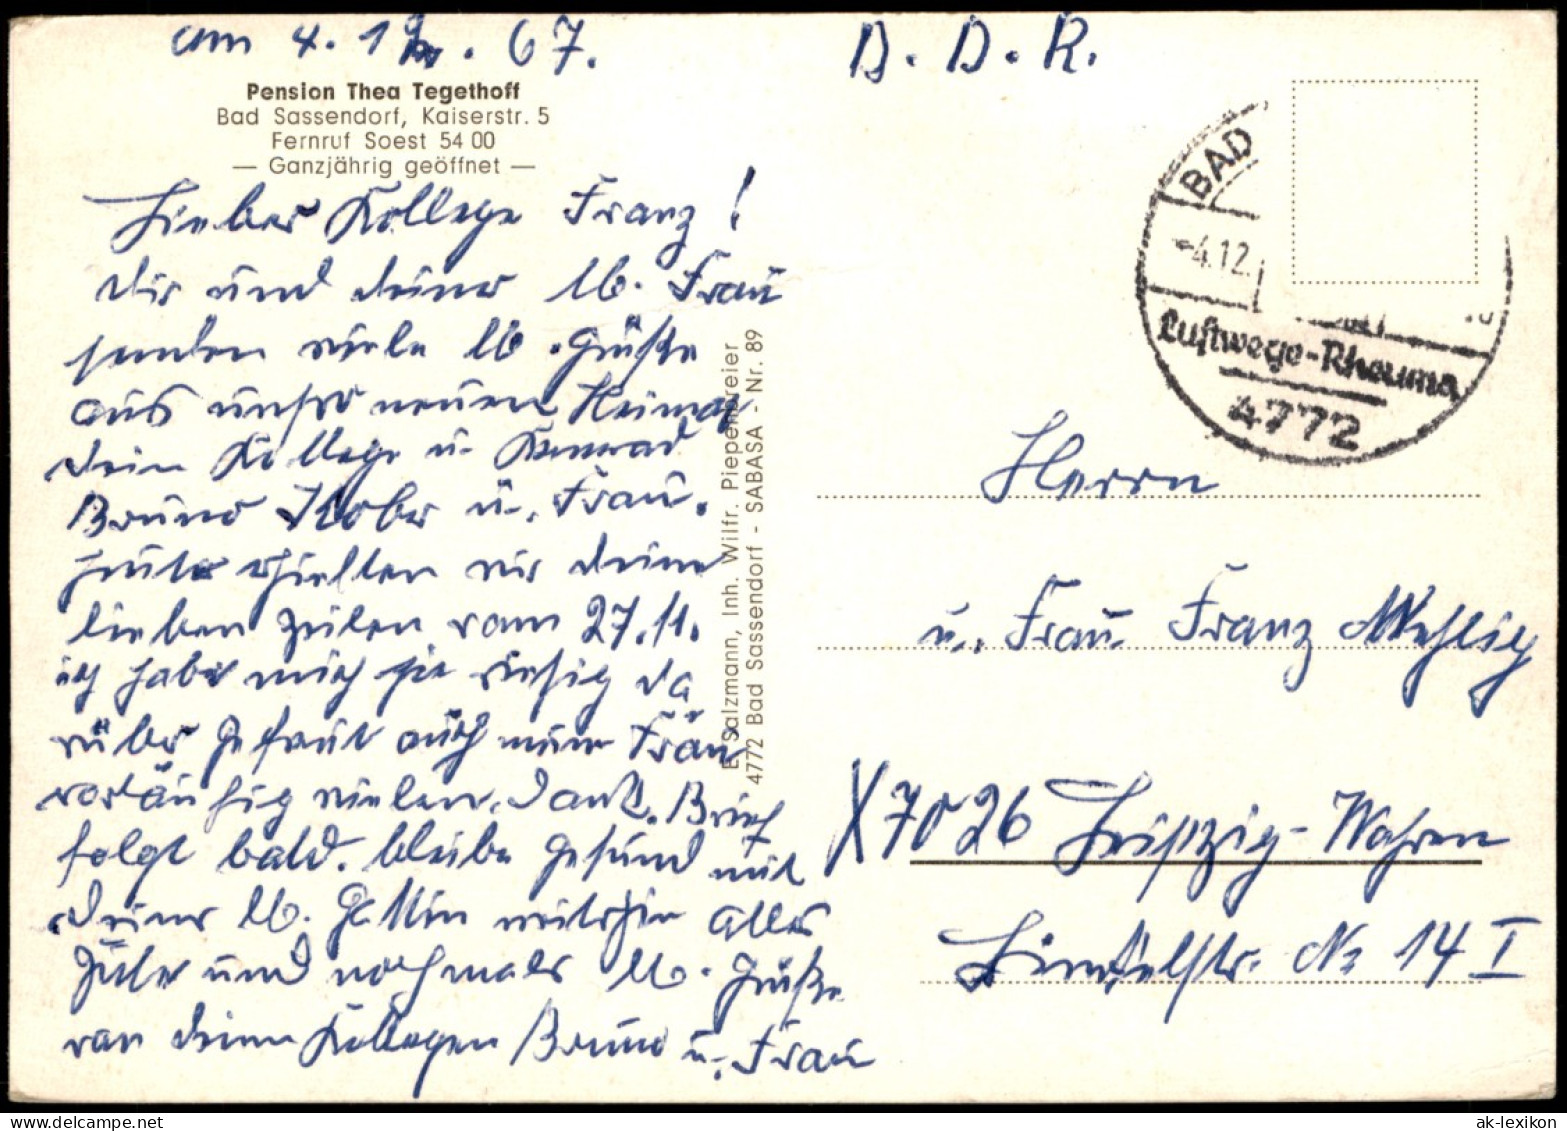 am 4.12.67.
D.D.R.
Pension Thea Tegethoff
Bad Sassendorf, Kaiserstr. 5
Fernruf Soest 54 00
— Ganzjährig geöffnet —
Lieber Kollege Franz!
Dir und deiner lb. Frau
senden viele lb. Grüße
aus unser neuen Heimat
dein Kollege u. Kamerad
Bruno Kober u. Frau.
heute erhielten wir deine
lieben Zeilen vom 27.11.
ich habe mich sie riesig da
rüber gefreut auch meine Frau
vorläufig vielen Dank. Brief
folgt bald. bleibe gesund mit
deiner lb. Gattin weiterhin alles
Gute und nochmals lb. Grüße
von deinen Kollegen Bruno u. Frau
E. Salzmann, Inh. Wilfr. Piepenbreier
4772 Bad Sassendorf - SABASA - Nr. 89
BAD
-4.12.
Luftwege-Rheuma
4772
Herrn
u. Frau Franz Mehlig
X7026 Leipzig-Wahren
Nr 14 I
ak-lexikon